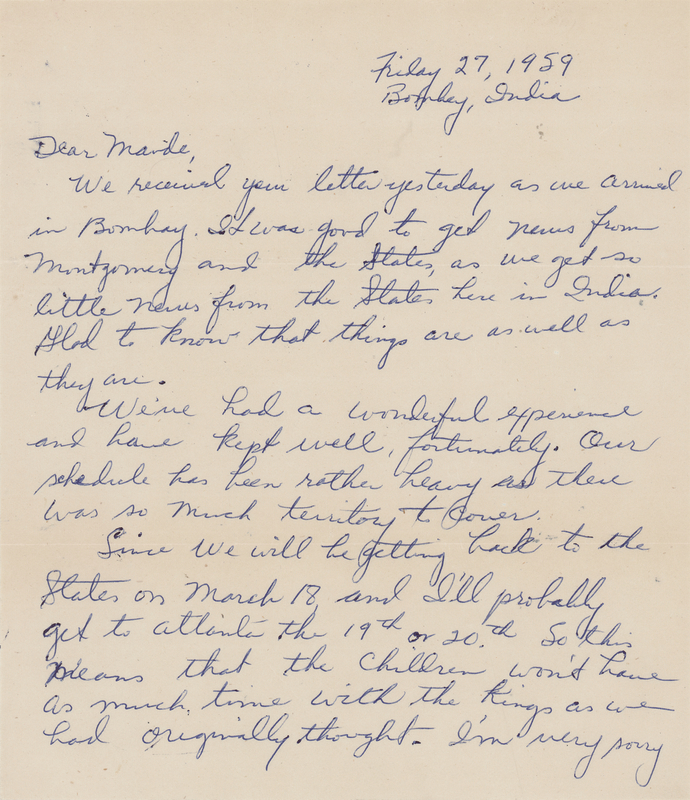 Friday 27, 1959
Bombay, India
Dear Maude,
We received your letter yesterday as we arrived
in Bombay. It was good to get news from
Montgomery and the States, as we get so
little news from the States here in India.
Glad to know that things are as well as
they are.
We've had a wonderful experience
and have kept well, fortunately. Our
schedule has been rather heavy as there
was so much territory to cover.
Since we will be getting back to the
States on March 18, and I'll probably
get to Atlanta the 19th or 20.th So this
means that the children won't have
as much time with the Kings as we
had originally thought. I'm very sorry